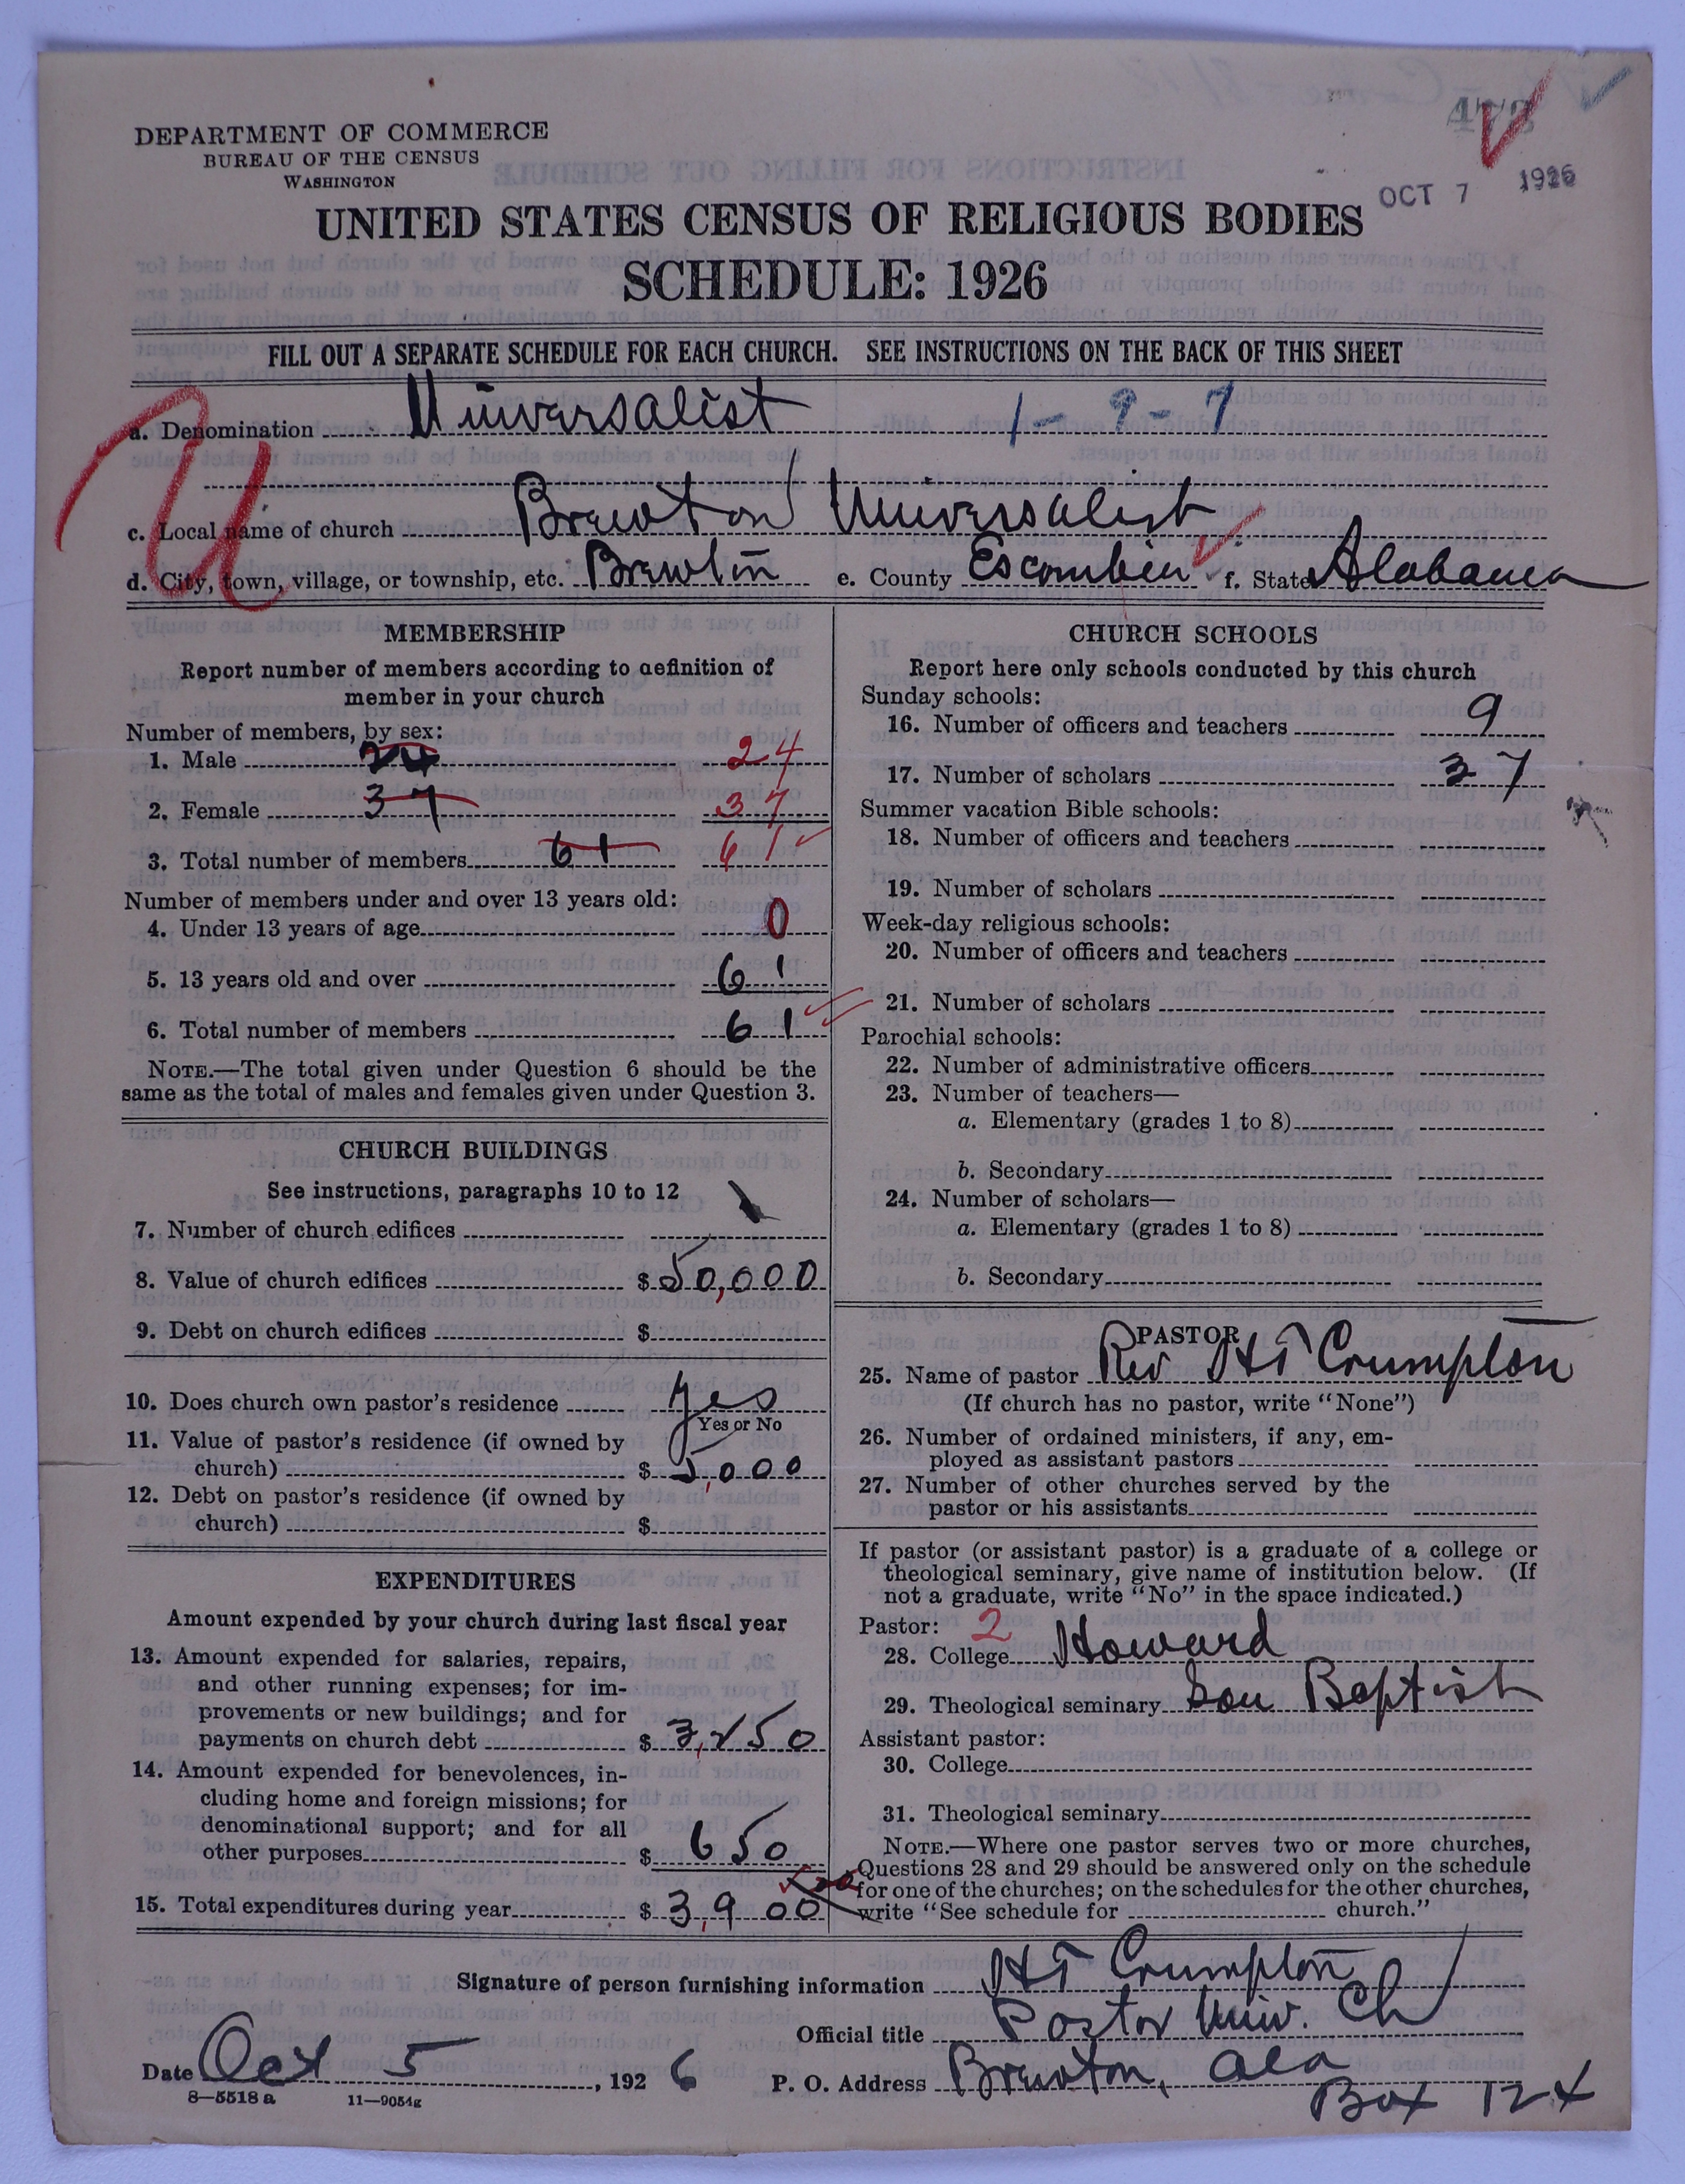 473
OCT 7 1926
DEPARTMENT OF COMMERCE
BUREAU OF THE CENSUS
WASHINGTON
UNITED STATES CENSUS OF RELIGIOUS BODIES
SCHEDULE: 1926
FILL OUT A SEPARATE SCHEDULE FOR EACH CHURCH. SEE INSTRUCTIONS ON THE BACK OF THIS SHEET
U
a. Denomination Universalist 1-9-7
c. Local name of church Brewton Universalist
d. City, town, village, or township, etc. Brewton e. County Escambia f. State Alabama
MEMBERSHIP
Report number of members according to definition of
member in your church
Number of members, by sex:
1. Male 24 24
2. Female 37 37
3. Total number of members 61 61
Number of members under and over 13 years old:
4. Under 13 years of age 0
5. 13 years old and over 61
6. Total number of members 61
NOTE.—The total given under Question 6 should be the
same as the total of males and females given under Question 3.
CHURCH BUILDINGS
See instructions, paragraphs 10 to 12
7. Number of church edifices 1
8. Value of church edifices $ 50,000
9. Debt on church edifices $
10. Does church own pastor's residence Yes
Yes or No
11. Value of pastor's residence (if owned by
church) $ 5,000
12. Debt on pastor's residence (if owned by
church) $
EXPENDITURES
Amount expended by your church during last fiscal year
13. Amount expended for salaries, repairs,
and other running expenses; for im-
provements or new buildings; and for
payments on church debt $ 3,250
14. Amount expended for benevolences, in-
cluding home and foreign missions; for
denominational support; and for all
other purposes $ 650
15. Total expenditures during year $ 3,900
CHURCH SCHOOLS
Report here only schools conducted by this church
Sunday schools:
16. Number of officers and teachers 9
17. Number of scholars 37
Summer vacation Bible schools:
18. Number of officers and teachers
19. Number of scholars
Week-day religious schools:
20. Number of officers and teachers
21. Number of scholars
Parochial schools:
22. Number of administrative officers
23. Number of teachers—
a. Elementary (grades 1 to 8)
b. Secondary
24. Number of scholars—
a. Elementary (grades 1 to 8)
b. Secondary
PASTOR
25. Name of pastor Rev HT Crumpton
(If church has no pastor, write "None")
26. Number of ordained ministers, if any, em-
ployed as assistant pastors
27. Number of other churches served by the
pastor or his assistants
If pastor (or assistant pastor) is a graduate of a college or
theological seminary, give name of institution below. (If
not a graduate, write "No" in the space indicated.)
Pastor: 2
28. College Howard
29. Theological seminary Sou Baptist
Assistant pastor:
30. College
31. Theological seminary
NOTE.—Where one pastor serves two or more churches,
Questions 28 and 29 should be answered only on the schedule
for one of the churches; on the schedules for the other churches,
write "See schedule for church."
Signature of person furnishing information HT Crumpton
Official title Pastor Univ. Ch
Date Oct 5, 1926 P. O. Address Brewton, Ala
Box 124
8—5518 a 11—9054g